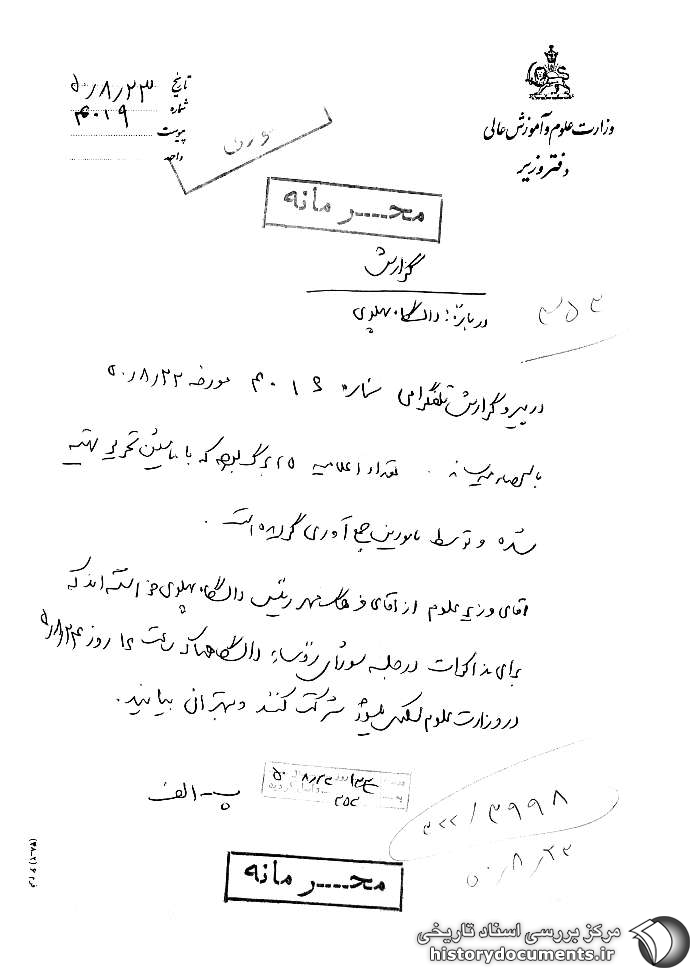 وزارت علوم و آموزش عالی
دفتر وزیر
تاریخ ۵۰/۸/۲۳
شماره ۴۰۱۹
پیوست
واحد
محـــرمانه
گزارش
درباره: دانشگاه پهلوی
۳۵۲
در پیرو گزارش تلفنگرامی شماره ۴۰۱۶ مورخه ۵۰/۸/۲۲
باستحضار میرساند. تعداد اعلامیه ۲۵ برگ بوده که با ماشین تحریر تهیه
شده و توسط مامورین جمع آوری گردیده است.
آقای وزیر علوم از آقای فرهنگ مهر رئیس دانشگاه پهلوی خواسته اند که
برای مذاکرات در جلسه شورای رؤساء دانشگاهها که ساعت ۱۶ روز ۵۰/۸/۲۴
در وزارت علوم تشکیل میشود شرکت کنند و بتهران بیایند.
پ - الف
۵۰/۸/۲۳
۳۵۲
۳۲۲/۳۹۹۸
۵۰/۸/۲۳
محـــرمانه
مرکز بررسی اسناد تاریخی
historydocuments.ir